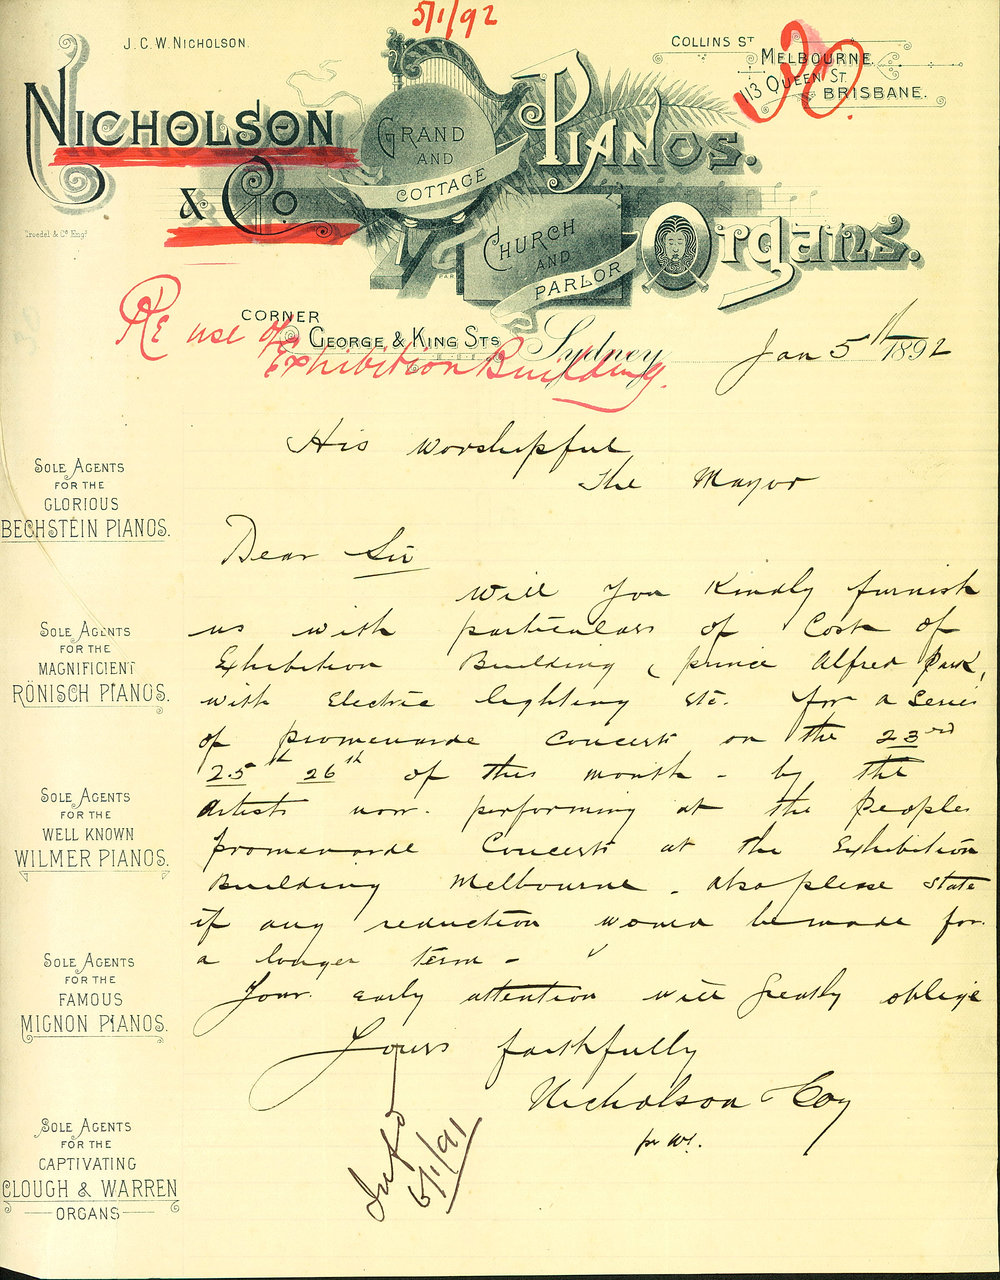 5/1/92
J. C. W. NICHOLSON.
COLLINS ST MELBOURNE.
113 QUEEN ST. BRISBANE.
20.
NICHOLSON
& Co
GRAND
AND
COTTAGE
PIANOS.
CHURCH
AND
PARLOR
ORgans.
Troedel & Co Engs
CORNER
GEORGE & KING STS
Sydney
Jan 5th 1892
Re use of
Exhibition Building.
His Worshipful
The Mayor
Dear Sir
Will you kindly furnish
us with particulars of Cost of
Exhibition Building (Prince Alfred Park,
with Electric lighting etc. for a series
of promenarde Concerts on the 23rd
25th 26th of this month - by the
Artists now performing at the Peoples
Promenarde Concerts at the Exhibition
Building Melbourne - Also please state
if any reduction would be made for
a longer term -
Your early attention will greatly oblige
Yours faithfully
Nicholson & Coy
pr W.
Infd
6/1/91
SOLE AGENTS
FOR THE
GLORIOUS
BECHSTEIN PIANOS.
SOLE AGENTS
FOR THE
MAGNIFICIENT
RÖNISCH PIANOS.
SOLE AGENTS
FOR THE
WELL KNOWN
WILMER PIANOS.
SOLE AGENTS
FOR THE
FAMOUS
MIGNON PIANOS.
SOLE AGENTS
FOR THE
CAPTIVATING
CLOUGH & WARREN
ORGANS